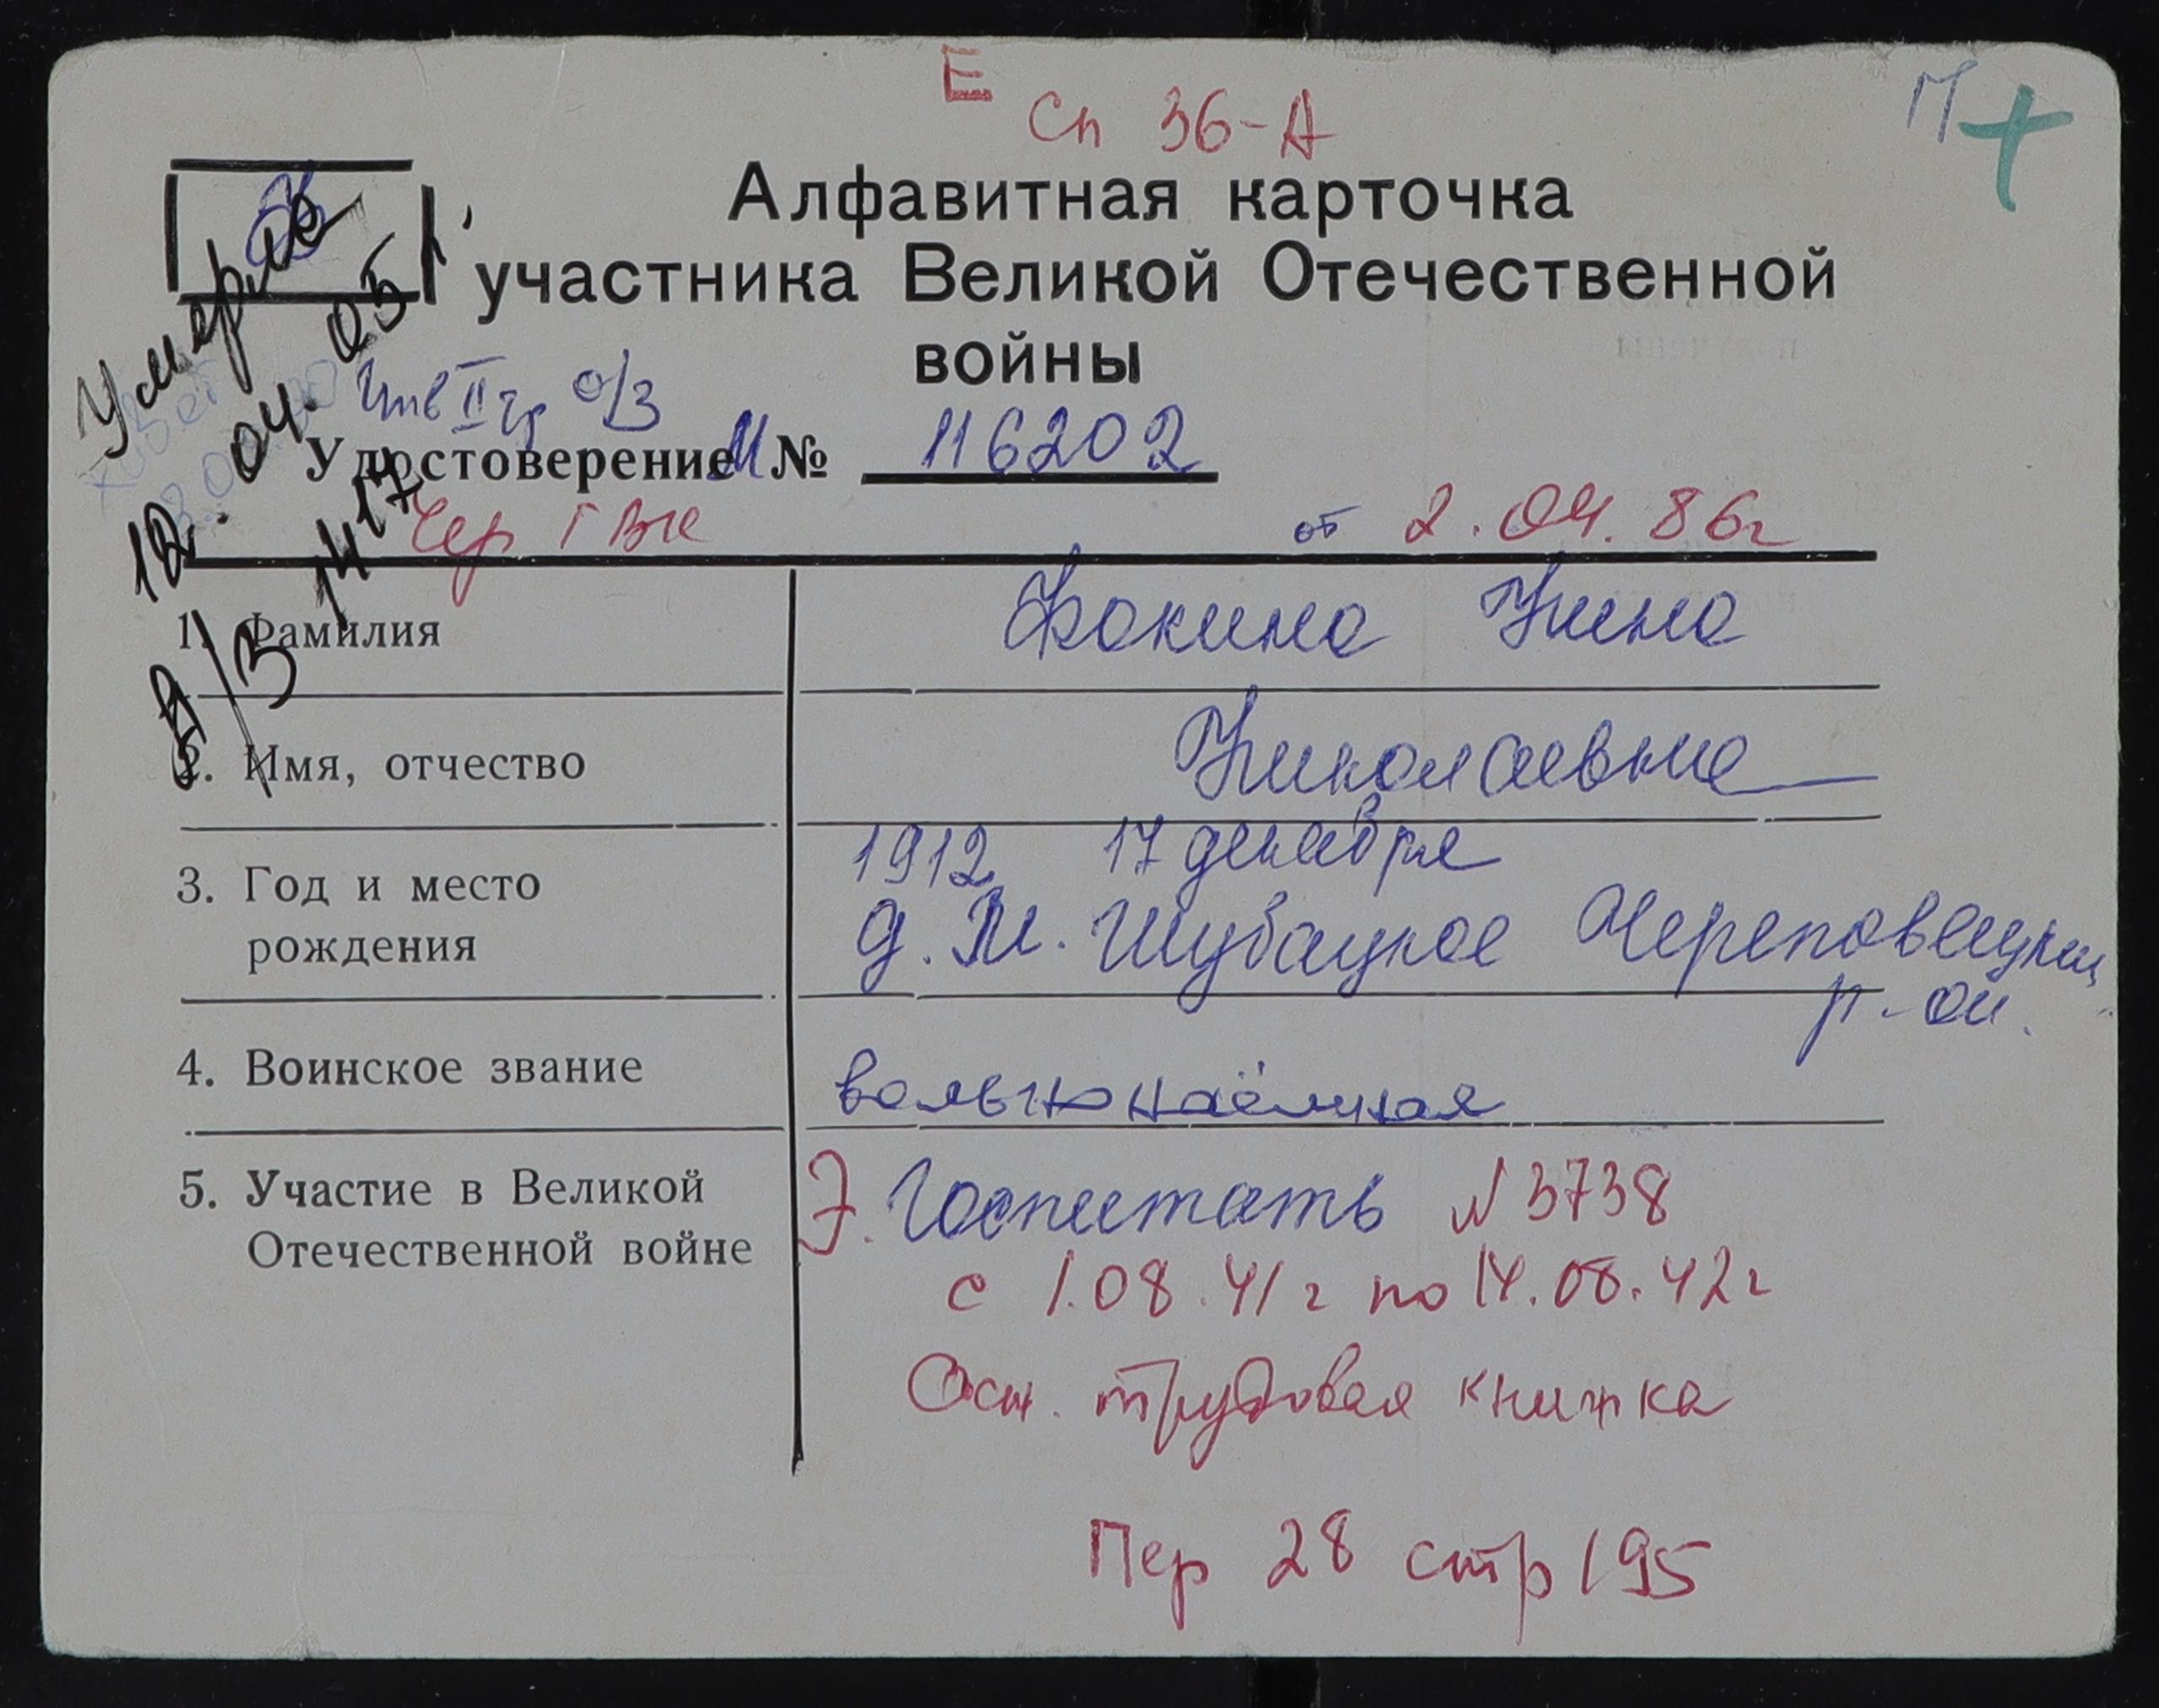 Е
Сп 36-А
П
Алфавитная карточка
участника Великой Отечественной
войны
Умерла
12.04.05 г.
в/з 1417
Инв II гр О/З
Удостоверение И № 116202
Чер ГВК от 2.04.86г
1. Фамилия Фокина Нина
2. Имя, отчество Николаевна
3. Год и место 1912 17 декабря
рождения д. М. Шубацкое Череповецкий
р-он.
4. Воинское звание вольнонаёмная
5. Участие в Великой Э. Госпиталь №3738
Отечественной войне с 1.08.41г по 14.08.42г
Осн. трудовая книжка
Пер 28 стр 195